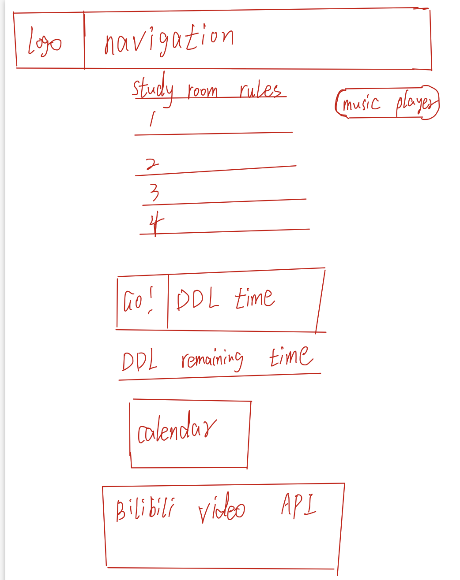 logo navigation
study room rules
music player
1
2
3
4
Go! DDL time
DDL remaining time
calendar
Bilibili video API